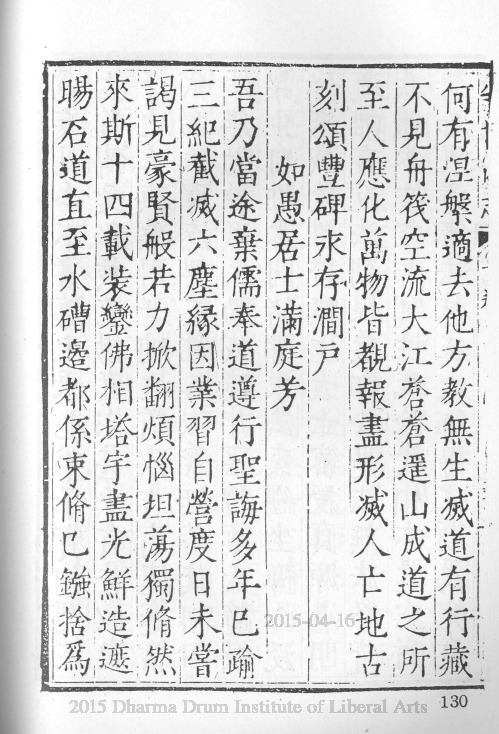 何有涅槃適去他方教無生滅道有行藏
不見舟筏空流大江蒼蒼遥山成道之所
至人應化萬物皆覩報盡形滅人亡地古
刻頌豐碑永存澗戸
如愚居士滿庭芳
吾乃當途棄儒奉道遵行聖誨多年已踰
三紀截滅六塵緣因業習自營度日未嘗
謁見豪賢般若力掀翻煩惱坦蕩獨脩然
來斯十四載裝鑾佛相塔宇盡光鮮造遮
暘石道直至水磨邊都係束脩巳鏹捨爲
2015-04-16
130
2015 Dharma Drum Institute of Liberal Arts